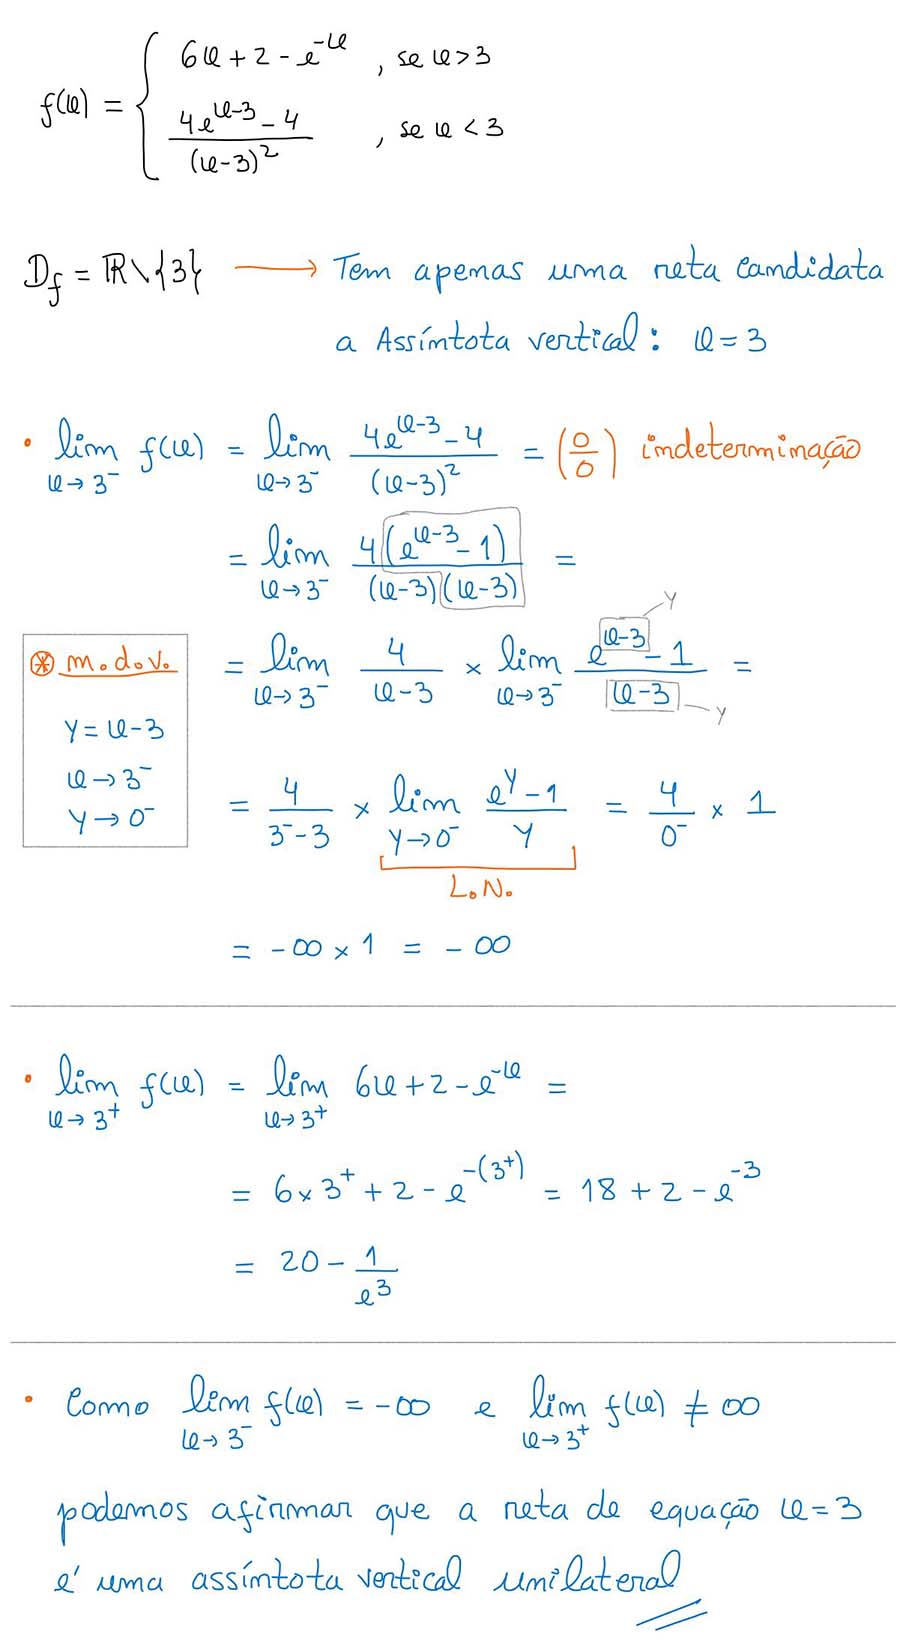 f(x) = { 6x + 2 - e^{-x} , se x > 3
\frac{4e^{x-3} - 4}{(x-3)^2} , se x < 3
D_f = ℝ\{3} → Tem apenas uma reta candidata
a Assíntota vertical: x = 3
• lim_{x→3^-} f(x) = lim_{x→3^-} \frac{4e^{x-3} - 4}{(x-3)^2} = (\frac{0}{0}) indeterminação
= lim_{x→3^-} \frac{4(e^{x-3} - 1)}{(x-3)(x-3)} =
y
= lim_{x→3^-} \frac{4}{x-3} × lim_{x→3^-} \frac{e^{x-3} - 1}{x-3} =
y
⊛ m.d.v.
y = x-3
x → 3^-
y → 0^-
= \frac{4}{3^- - 3} × lim_{y→0^-} \frac{e^y - 1}{y} = \frac{4}{0^-} × 1
L.N.
= -∞ × 1 = -∞
• lim_{x→3^+} f(x) = lim_{x→3^+} 6x + 2 - e^{-x} =
= 6×3^+ + 2 - e^{-(3^+)} = 18 + 2 - e^{-3}
= 20 - \frac{1}{e^3}
• Como lim_{x→3^-} f(x) = -∞ e lim_{x→3^+} f(x) ≠ ∞
podemos afirmar que a reta de equação x = 3
é uma assíntota vertical unilateral